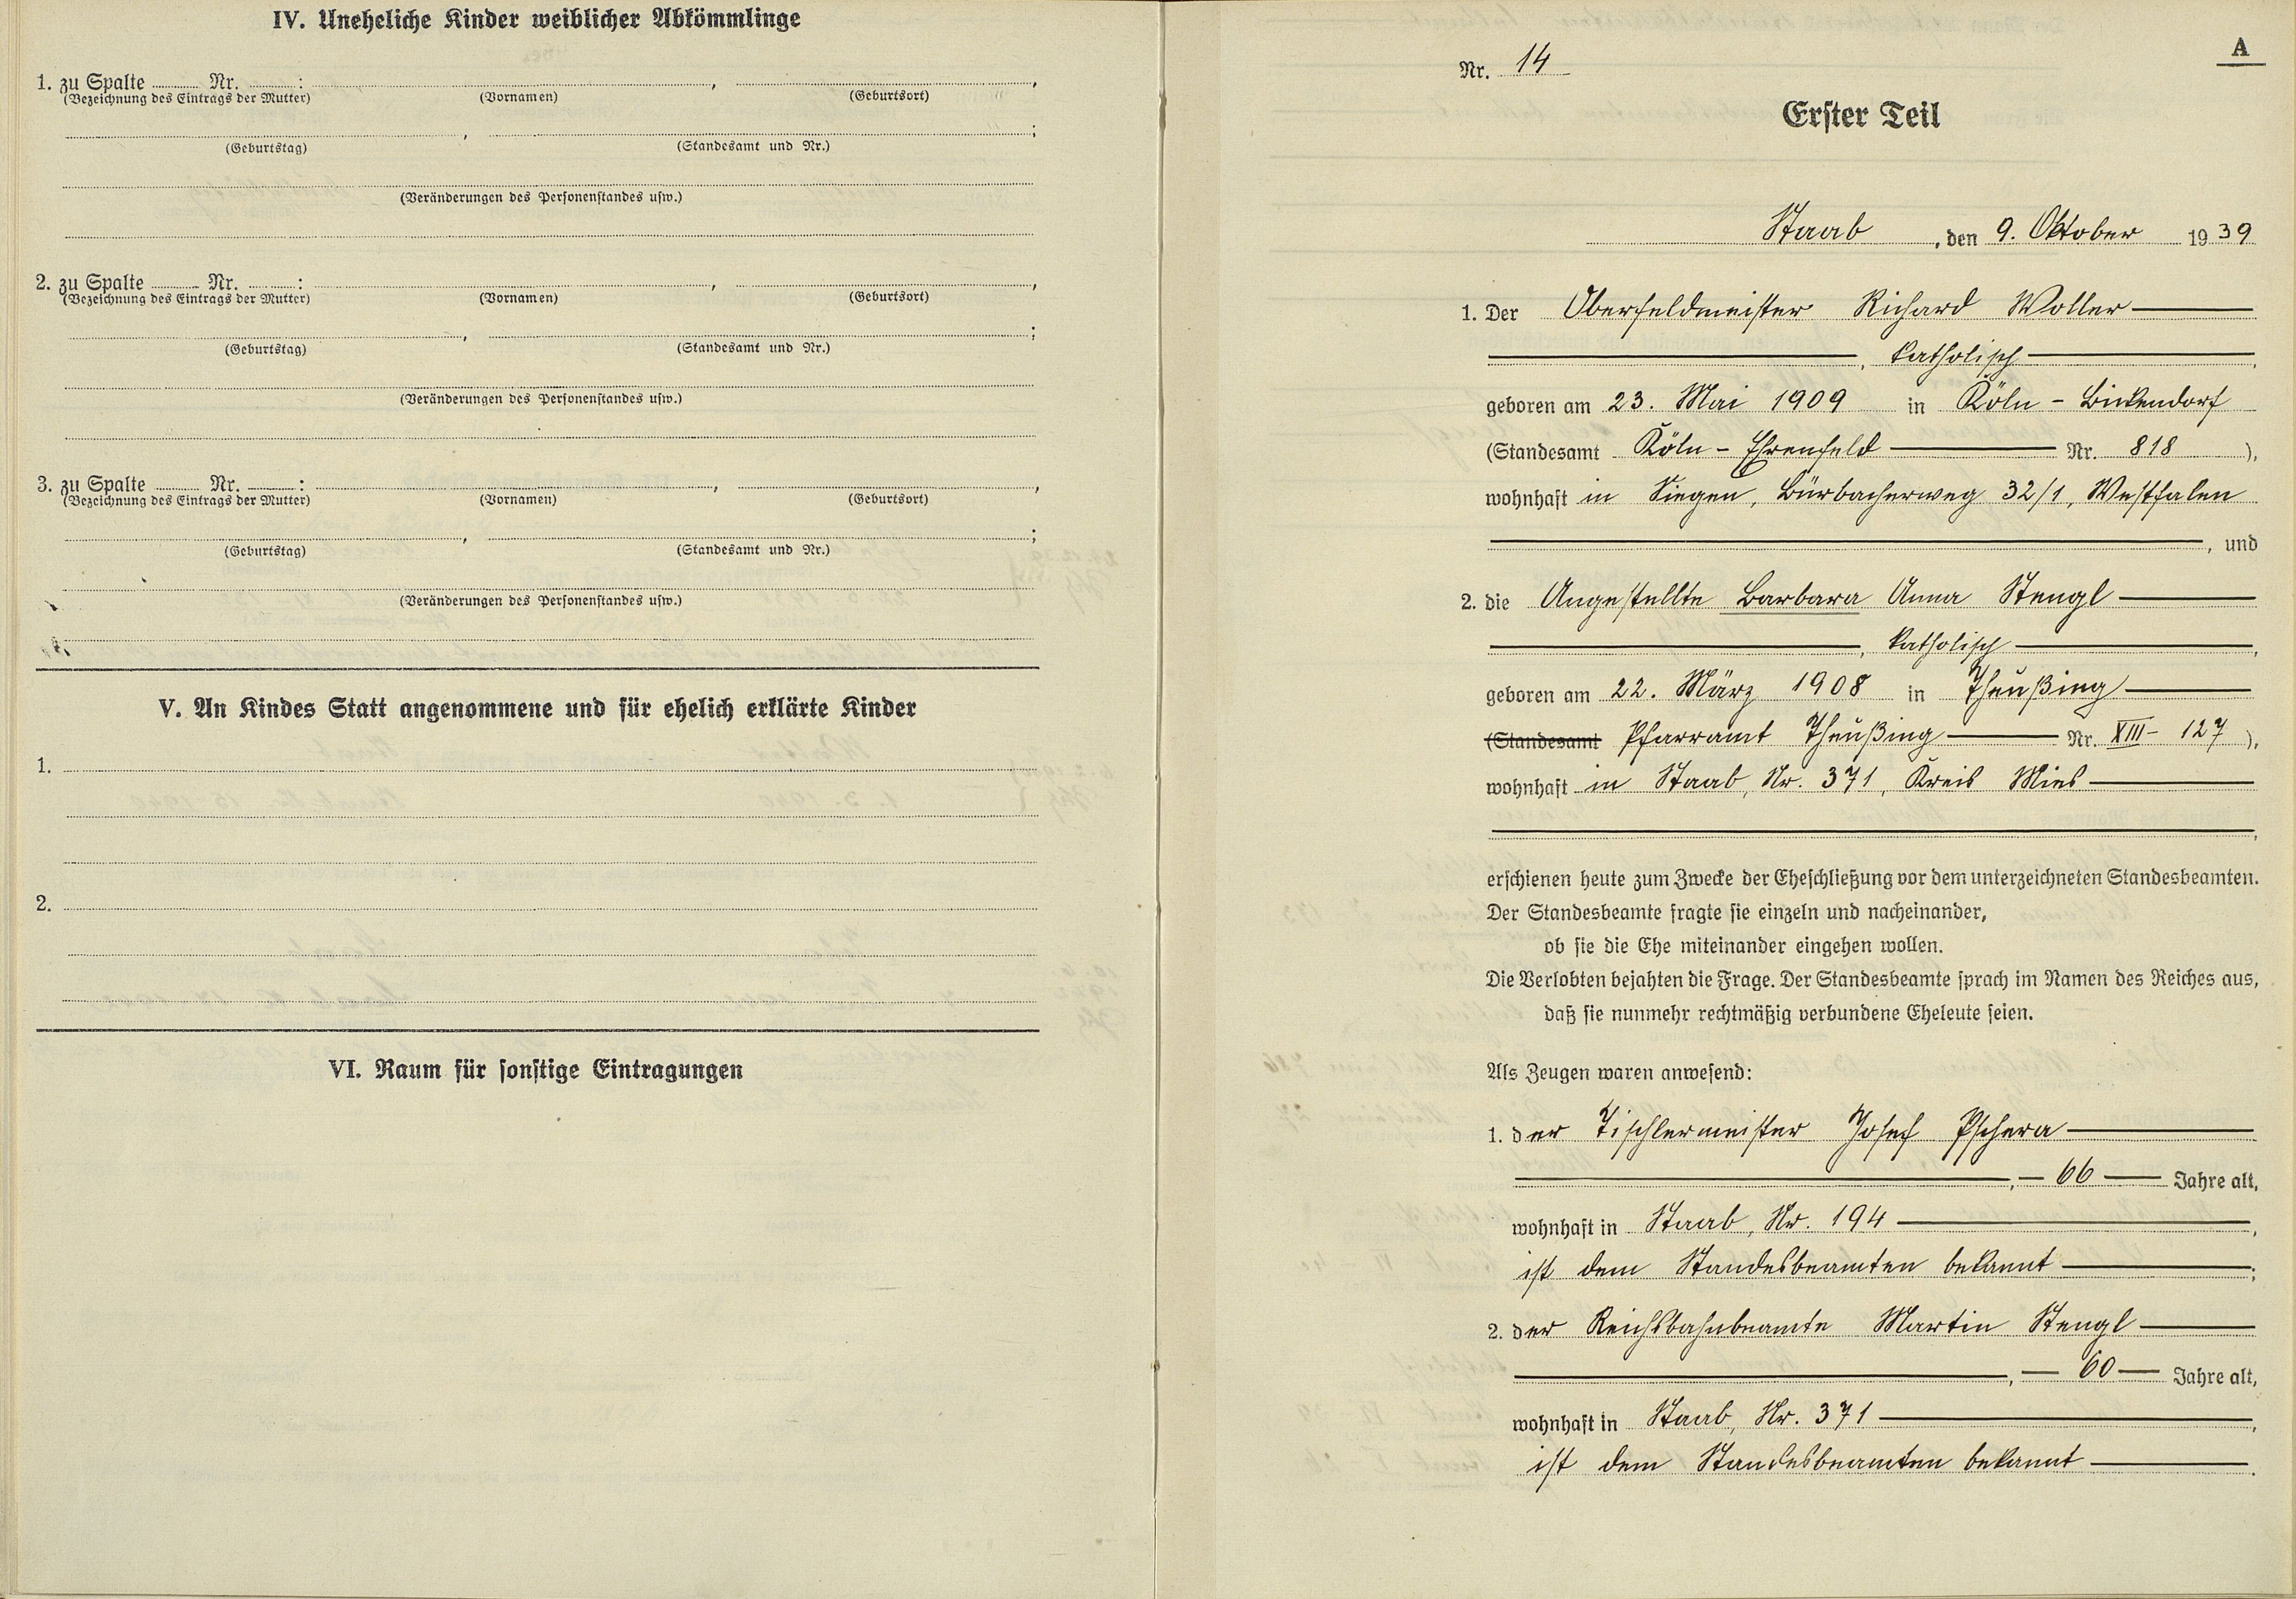 IV. Uneheliche Kinder weiblicher Abkömmlinge
1. zu Spalte ........ Nr. ........:
(Bezeichnung des Eintrags der Mutter) (Vornamen) , (Geburtsort) ,
(Geburtstag) , (Standesamt und Nr.) ;
(Veränderungen des Personenstandes usw.)
2. zu Spalte ........ Nr. ........:
(Bezeichnung des Eintrags der Mutter) (Vornamen) , (Geburtsort) ,
(Geburtstag) , (Standesamt und Nr.) ;
(Veränderungen des Personenstandes usw.)
3. zu Spalte ........ Nr. ........:
(Bezeichnung des Eintrags der Mutter) (Vornamen) , (Geburtsort) ,
(Geburtstag) , (Standesamt und Nr.) ;
(Veränderungen des Personenstandes usw.)
V. An Kindes Statt angenommene und für ehelich erklärte Kinder
1.
2.
VI. Raum für sonstige Eintragungen
A
Nr. 14
Erster Teil
Staab, den 9. Oktober 1939
1. Der Oberfeldmeister Richard Woller
, katholisch ,
geboren am 23. Mai 1909 in Köln - Bickendorf
(Standesamt Köln - Ehrenfeld Nr. 818 ),
wohnhaft in Siegen, Bürbacherweg 32/1, Westfalen
, und
2. die Angestellte Barbara Anna Stengl
, katholisch ,
geboren am 22. März 1908 in Theußing
(Standesamt Pfarramt Theußing Nr. XIII - 127 ),
wohnhaft in Staab, Nr. 371, Kreis Mies
,
erschienen heute zum Zwecke der Eheschließung vor dem unterzeichneten Standesbeamten.
Der Standesbeamte fragte sie einzeln und nacheinander,
ob sie die Ehe miteinander eingehen wollen.
Die Verlobten bejahten die Frage. Der Standesbeamte sprach im Namen des Reiches aus,
daß sie nunmehr rechtmäßig verbundene Eheleute seien.
Als Zeugen waren anwesend:
1. der Tischlermeister Josef Pschera
, 66 Jahre alt,
wohnhaft in Staab, Nr. 194 ,
ist dem Standesbeamten bekannt ;
2. der Reichsbahnbeamte Martin Stengl
, 60 Jahre alt,
wohnhaft in Staab, Nr. 371 ,
ist dem Standesbeamten bekannt .